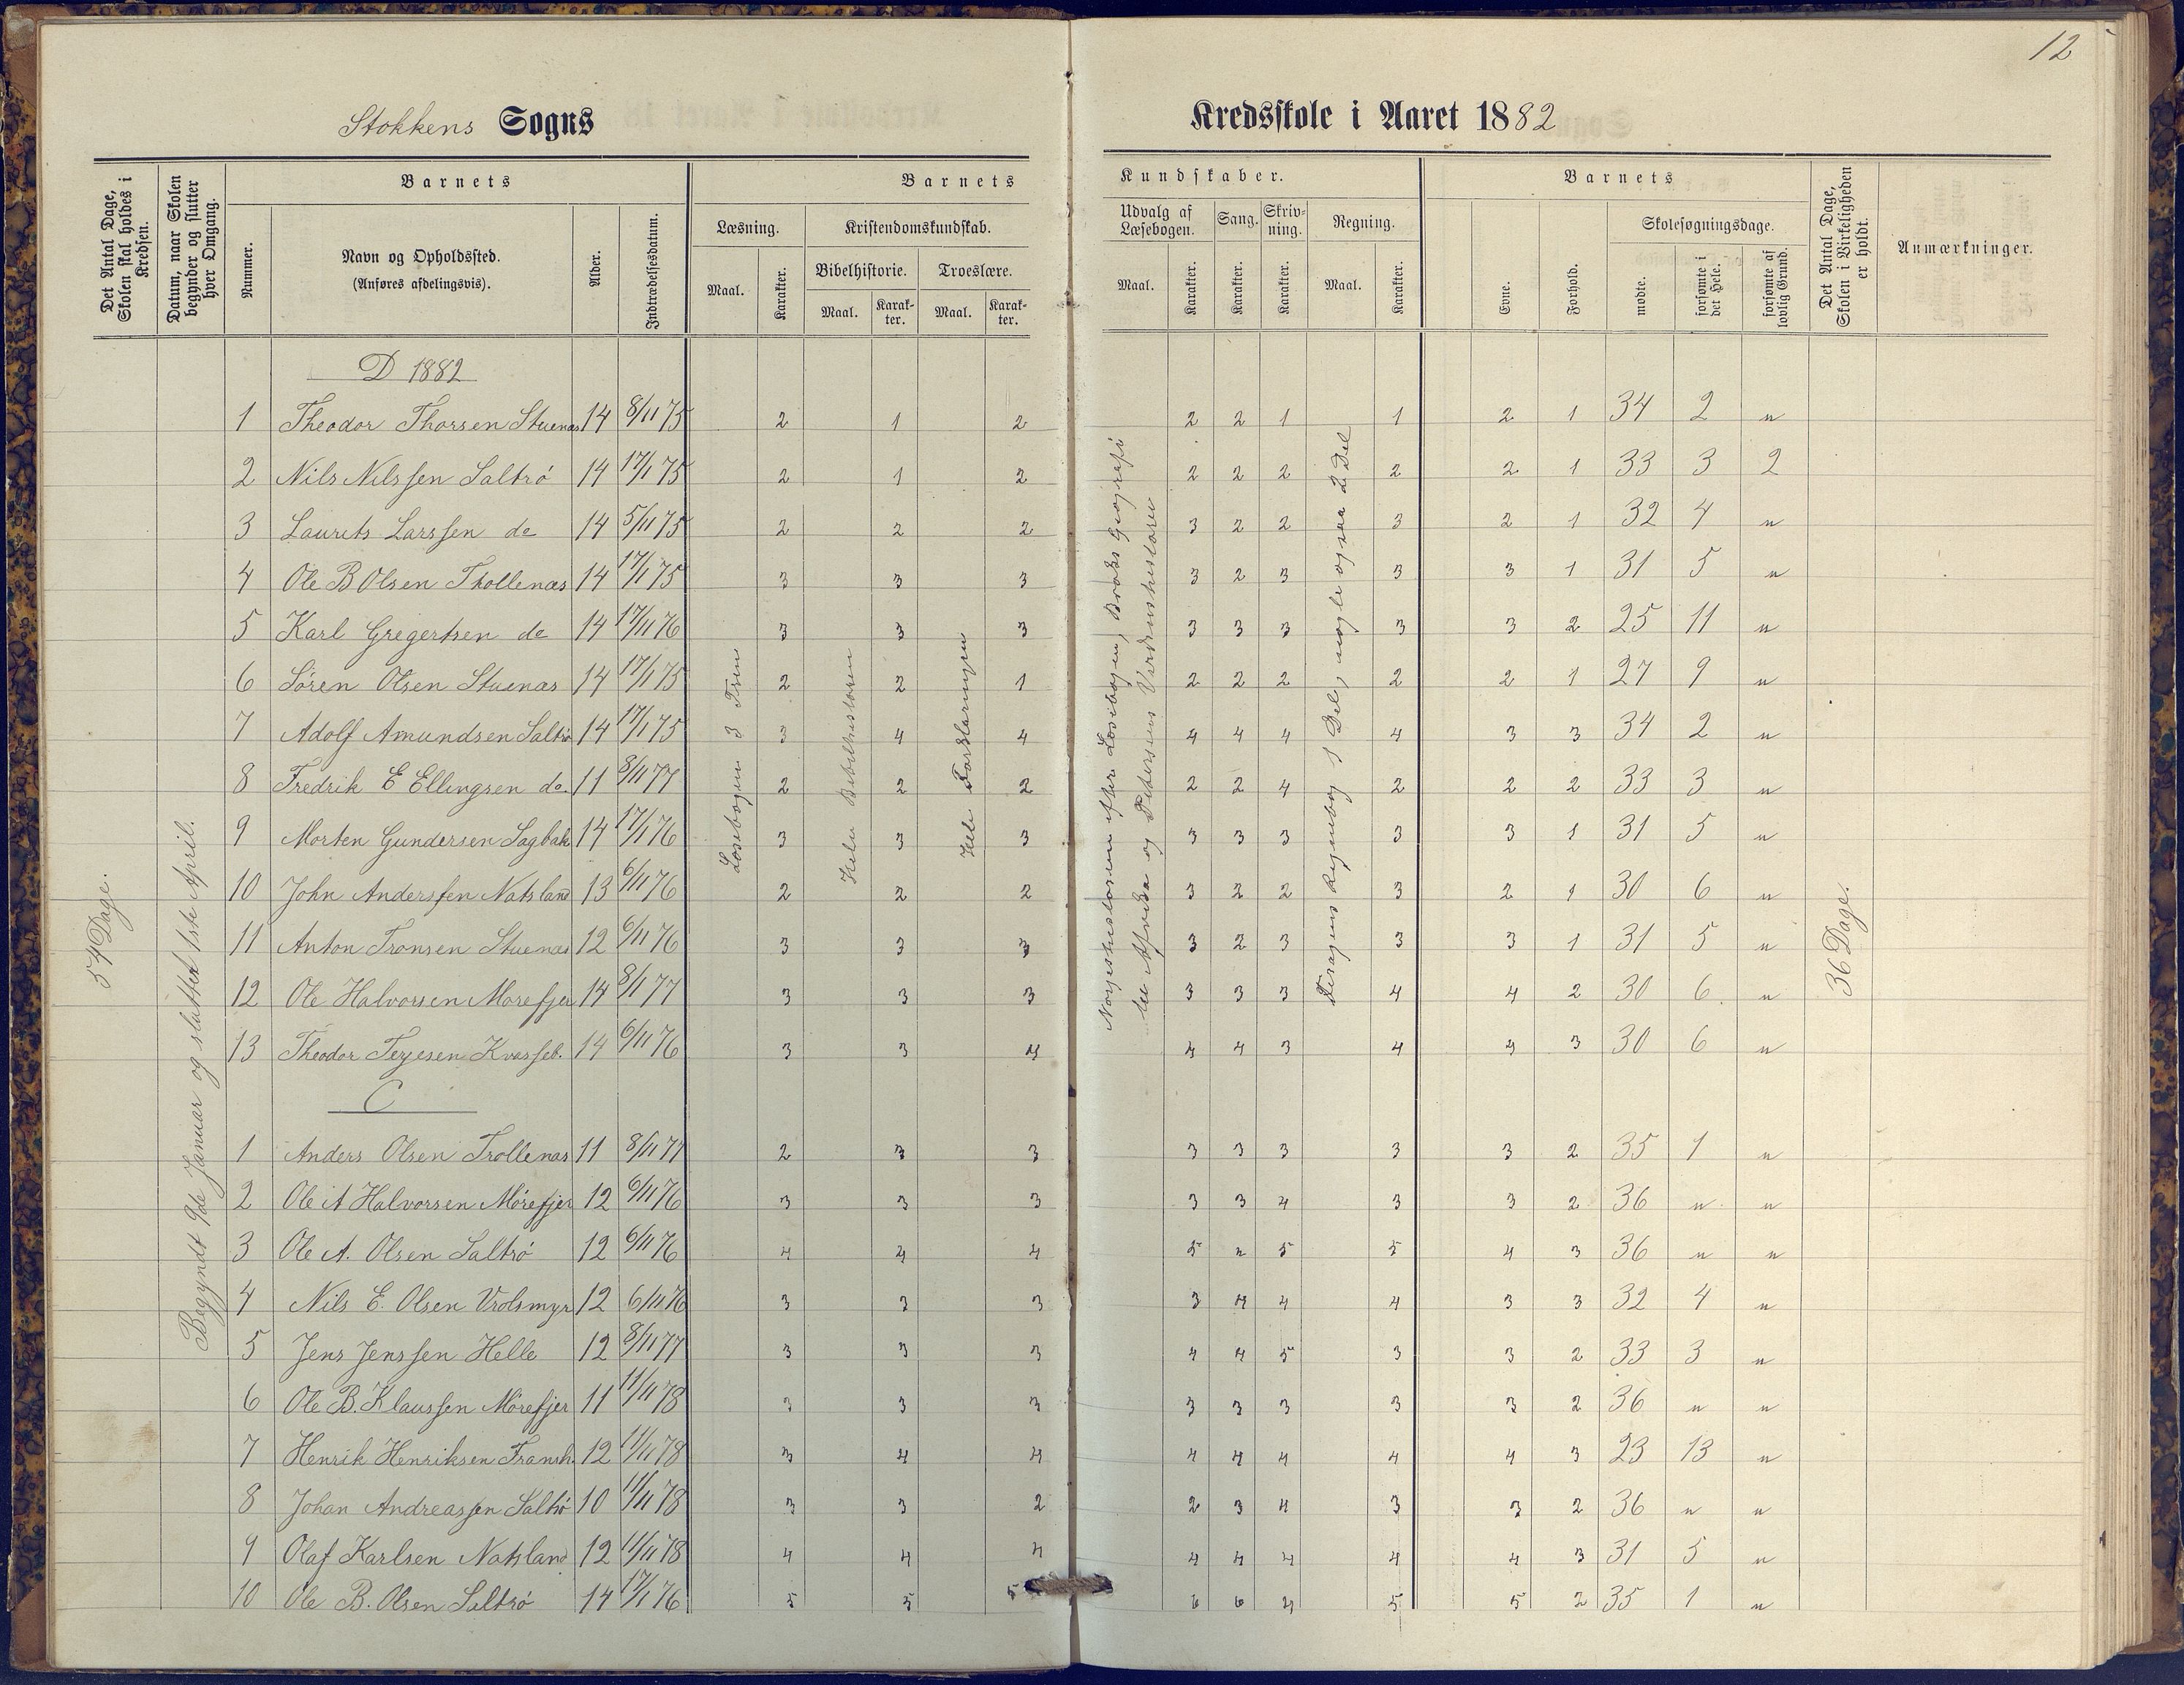 12
Stokkens Sogns
Kredsskole i Aaret 1882
Det Antal Dage, Skolen skal holdes i Kredsen.
Datum, naar Skolen begynder og slutter hver Omgang.
Barnets
Nummer.
Navn og Opholdssted.
(Anføres afdelingsvis).
Alder.
Indtrædelsesdatum.
Barnets
Læsning.
Maal.
Karakter.
Kristendomskundskab.
Bibelhistorie.
Maal.
Karak-ter.
Troeslære.
Maal.
Karak-ter.
Kundskaber.
Udvalg af Læsebogen.
Maal.
Karakter.
Sang.
Karakter.
Skriv-ning.
Karakter.
Regning.
Maal.
Karakter.
Barnets
Evne.
Forhold.
Skolesøgningsdage.
mødte.
forsømte i det Hele.
forsømte af lovlig Grund.
Det Antal Dage, Skolen i Virkeligheden er holdt.
Anmærkninger.
54 Dage.
Begyndt 9de Januar og sluttet 1ste April.
Læsebogen 3 Trin
Hele Bibelhistorien
Hele Forklaringen
Norgeshistorien efter Læsebogen, Brochs Geografi
og Petersens Verdenshistorie
Regnebog 1 Del, nogle ogsaa 2 Del
36 Dage.
D 1882
1 Theodor Thorsen Stuenæs 14 8/11 75 2 1 2 2 2 1 1 2 1 34 2 "
2 Nils Nilssen Saltrö 14 17/1 75 2 1 2 2 2 2 2 2 1 33 3 2
3 Laurets Larssen do 14 5/11 75 2 2 2 3 2 2 3 2 1 32 4 "
4 Ole B Olsen Thollenæs 14 17/1 75 3 3 3 3 2 3 3 3 1 31 5 "
5 Karl Gregertsen do 14 17/11 76 3 3 3 3 3 3 3 3 2 25 11 "
6 Sören Olsen Stuenæs 14 17/1 75 2 2 1 2 2 2 2 2 1 27 9 "
7 Adolf Amundsen Saltrö 14 17/1 75 3 4 4 4 4 4 4 3 3 34 2 "
8 Fredrik E Ellingsen do. 11 8/11 77 2 2 2 2 2 4 2 2 2 33 3 "
9 Morten Gundersen Sagbak 14 17/1 76 3 3 3 3 3 3 3 3 1 31 5 "
10 John Anderssen Natsland 13 6/11 76 2 2 2 3 2 2 3 2 1 30 6 "
11 Anton Tronsen Stuenæs 12 6/11 76 3 3 3 3 2 3 3 3 1 31 5 "
12 Ole Halvorsen Mørefjer 14 8/11 77 3 3 3 3 3 3 4 4 2 30 6 "
13 Theodor Terjesen Kvasseb. 14 6/11 76 3 3 4 4 4 3 4 4 3 30 6 "
C
1 Anders Olsen Trollenæs 11 8/11 77 2 3 3 3 3 3 3 3 2 35 1 "
2 Ole A Halvorsen Mörefjer 12 6/11 76 3 3 3 3 3 4 3 3 2 36 " "
3 Ole A. Olsen Saltrö 12 6/11 76 4 4 4 5 " 5 5 4 3 36 " "
4 Nils E. Olsen Vrolsmyr 12 6/11 76 3 3 3 3 4 4 4 3 3 32 4 "
5 Jens Jenssen Helle 12 8/11 77 3 3 3 4 4 5 3 3 2 33 3 "
6 Ole B. Klaussen Mörefjer 11 11/11 78 3 3 3 3 3 3 3 3 2 36 " "
7 Henrik Henriksen Fransh. 12 11/11 78 3 4 4 4 4 4 4 4 3 23 13 "
8 Johan Andreassen Saltrö 10 11/11 78 3 3 2 2 3 4 3 3 2 36 " "
9 Olaf Karlsen Natsland 12 11/11 78 4 4 4 4 4 4 4 4 3 31 5 "
10 Ole B. Olsen Saltrö 14 17/1 76 5 5 5 6 6 4 5 5 2 35 1 "